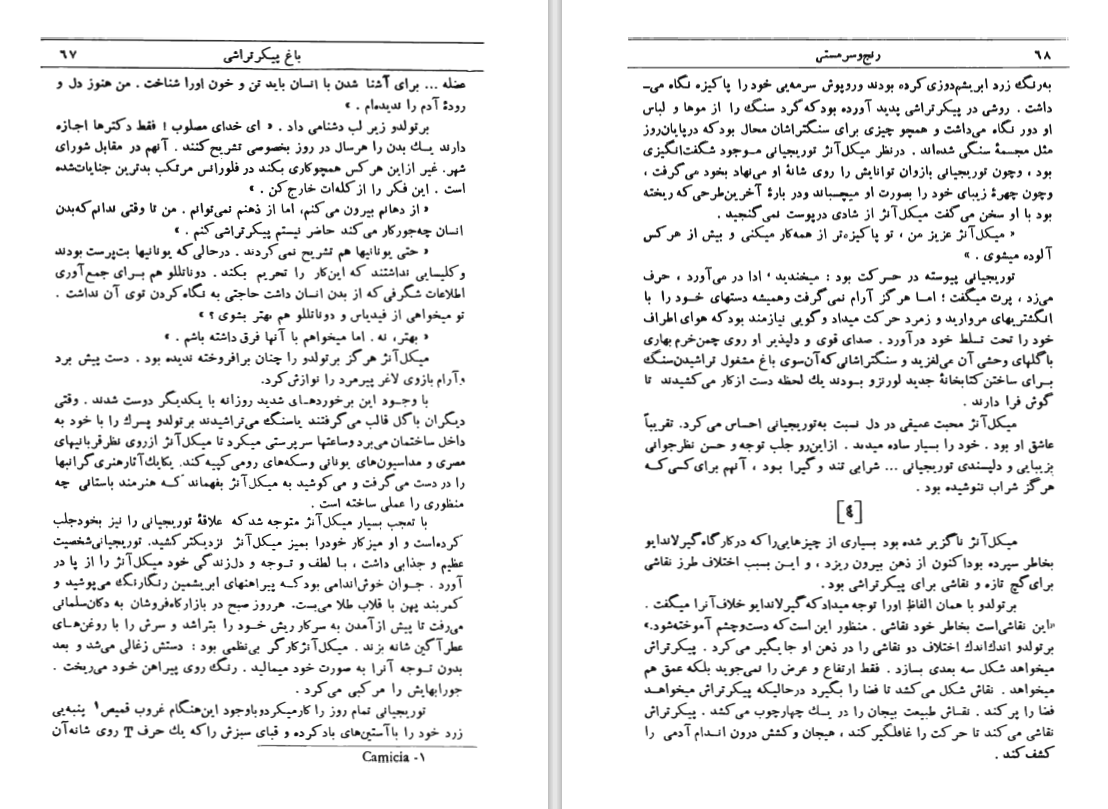 باغ پیکرتراشی ۶۷
عضله ... برای آشنا شدن با انسان باید تن و خون اورا شناخت . من هنوز دل و
رودهٔ آدم را ندیده‌ام . »
برتولدو زیر لب دشنامی داد . « ای خدای مصلوب ! فقط دکترها اجازه
دارند یك بدن را هرسال در روز بخصوصی تشریح کنند . آنهم در مقابل شورای
شهر. غیر ازاین هرکس همچوکاری بکند در فلورانس مرتکب بدترین جنایات‌شده
است . این فکر را ازکله‌ات خارج‌کن . »
« از دهانم بیرون می‌کنم، اما از ذهنم نمی‌توانم . من تا وقتی ندانم که‌بدن
انسان چه‌جورکار می‌کند حاضر نیستم پیکرتراشی‌کنم . »
« حتی یونانیها هم تشریح نمی‌کردند . درحالی‌که یونانیها بت‌پرست بودند
وکلیسایی نداشتند که این‌کار را تحریم بکند . دوناتللو هم برای جمع‌آوری
اطلاعات شگرفی‌که از بدن انسان داشت حاجتی به نگاه‌کردن توی آن نداشت .
تو میخواهی از فیدیاس و دوناتللو هم بهتر بشوی ؟ »
« بهتر، نه . اما میخواهم با آنها فرق داشته باشم . »
میکل‌آنژ هرگز برتولدو را چنان برافروخته ندیده بود . دست پیش برد
وآرام بازوی لاغر پیرمرد را نوازش‌کرد.
با وجود این برخوردهای شدید روزانه با یکدیگر دوست شدند . وقتی
دیگران باگل قالب می‌گرفتند یاسنگ می‌تراشیدند برتولدو پسرك را با خود به
داخل ساختمان می‌برد وساعتها سرپرستی میکرد تا میکل‌آنژ ازروی نظرقربانیهای
مصری و مدالیون‌های یونانی وسکه‌های رومی‌کپیه کند. یکایك‌آثارهنری‌گرانبها
را در دست می‌گرفت و می‌کوشید به میکل‌آنژ بفهماند که هنرمند باستانی چه
منظوری را عملی ساخته است .
با تعجب بسیار میکل‌آنژ متوجه شدکه علاقهٔ توریجیانی را نیز بخودجلب
کرده‌است و او میزکار خودرا بمیز میکل‌آنژ نزدیکترکشید. توریجیانی‌شخصیت
عظیم و جذابی داشت ، با لطف و توجه و دل‌زندگی خود میکل‌آنژ را از پا در
آورد . جوان خوش‌اندامی بودکه پیراهنهای ابریشمین رنگارنگ می‌پوشید و
کمربند پهن با قلاب طلا می‌بست. هرروز صبح در بازارکاه‌فروشان به دکان‌سلمانی
می‌رفت تا پیش ازآمدن به سرکار ریش خود را بتراشد و سرش را با روغن‌های
عطرآگین شانه بزند . میکل‌آنژکارگر بی‌نظمی بود : دستش زغالی می‌شد و بعد
بدون توجه آنرا به صورت خود میمالید . رنگ روی پیراهن خود می‌ریخت .
جورابهایش را مرکبی می‌کرد .
توریجیانی تمام روز را کارمیکردوباوجود این‌هنگام غروب قمیص۱ پنبه‌یی
زرد خود را باآستین‌های بادکرده و قبای سبزش راکه یك حرف T روی شانه‌آن
۱- Camicia
۶۸ رنج‌وسرمستی
به‌رنگ زرد ابریشم‌دوزی‌کرده بودند وروپوش سرمه‌یی خود را پاکیزه نگاه می‌ـ
داشت . روشی در پیکرتراشی پدید آورده بودکه‌گرد سنگ را از موها و لباس
او دور نگاه می‌داشت و همچو چیزی برای سنگتراشان محال بودکه درپایان‌روز
مثل مجسمهٔ سنگی شده‌اند . درنظر میکل‌آنژ توریجیانی موجود شگفت‌انگیزی
بود ، وچون توریجیانی بازوان توانایش را روی شانهٔ او می‌نهاد بخود می‌گرفت ،
وچون چهرهٔ زیبای خود را بصورت او میچسباند ودر بارهٔ آخرین‌طرحی‌که ریخته
بود با او سخن می‌گفت میکل‌آنژ از شادی درپوست نمی‌گنجید .
« میکل‌آنژ عزیز من ، تو پاکیزه‌تر از همه‌کار میکنی و بیش از هرکس
آلوده میشوی . »
توریجیانی پیوسته در حرکت بود : میخندید ، ادا در می‌آورد ، حرف
می‌زد ، پرت میگفت ؛ اما هرگز آرام نمی‌گرفت وهمیشه دستهای خود را با
انگشتریهای مروارید و زمرد حرکت میداد وگویی نیازمند بودکه هوای اطراف
خود را تحت تسلط خود درآورد . صدای قوی و دلپذیر او روی چمن‌خرم بهاری
باگلهای وحشی آن می‌لغزید و سنگتراشانی‌که‌آن‌سوی باغ مشغول تراشیدن‌سنگ
برای ساختن‌کتابخانهٔ جدید لورنزو بودند یك لحظه دست ازکار می‌کشیدند تا
گوش فرا دارند .
میکل‌آنژ محبت عمیقی در دل نسبت به‌توریجیانی احساس می‌کرد. تقریباً
عاشق او بود . خود را بسیار ساده میدید . ازاین‌رو جلب توجه و حسن نظرجوانی
بزیبایی و دلپسندی توریجیانی ... شرابی تند وگیرا بود ، آنهم برای‌کسی‌که
هرگز شراب ننوشیده بود .
[۴]
میکل‌آنژ ناگزیر شده بود بسیاری از چیزهایی‌راکه درکارگاه‌گیرلاندایو
بخاطر سپرده بوداکنون از ذهن بیرون ریزد ، و این بسبب اختلاف طرز نقاشی
برای‌گچ تازه و نقاشی برای پیکرتراشی بود .
برتولدو با همان الفاظ اورا توجه میدادکه‌گیرلاندایو خلاف‌آنرا میگفت .
«این نقاشی‌است بخاطر خود نقاشی . منظور این است‌که دست‌وچشم آموخته‌شود.»
برتولدو اندك‌اندك اختلاف دو نقاشی را در ذهن او جایگیر می‌کرد . پیکرتراش
میخواهد شکل سه بعدی بسازد . فقط ارتفاع و عرض را نمی‌جوید بلکه عمق هم
میخواهد . نقاش شکل می‌کشد تا فضا را بگیرد درحالیکه پیکرتراش میخواهد
فضا را پرکند . نقاش طبیعت بیجان را در یك چهارچوب می‌کشد . پیکرتراش
نقاشی می‌کند تا حرکت را غافلگیرکند ، هیجان وکشش درون اندام آدمی را
کشف‌کند .